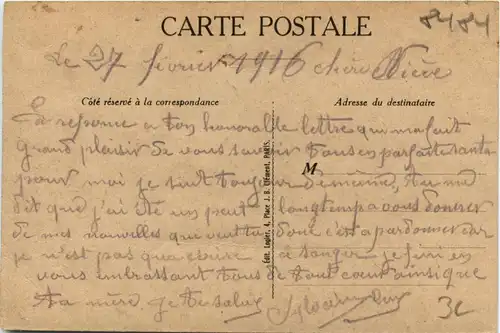 CARTE POSTALE
8484
Le 27 février 1916 chère Nièce
Côté réservé à la correspondance
Adresse du destinataire
La reponce a ton honorable lettre qui m'a fait
grand plaisir de vous savoir tous en parfaite santé
M
pour moi je suit toujour de même, tu me
dit que j'ai été un peut longtemp a vous donner
de mes nouvelles que veut tu donc c'est a pardonner car
je n'est pas que écrire a songer je fini en
vous embrassant tous de tout cœur ainsi que
ta mère je te salue
3c
Edit. Logier, 4, Place J. B. Clément, PARIS.